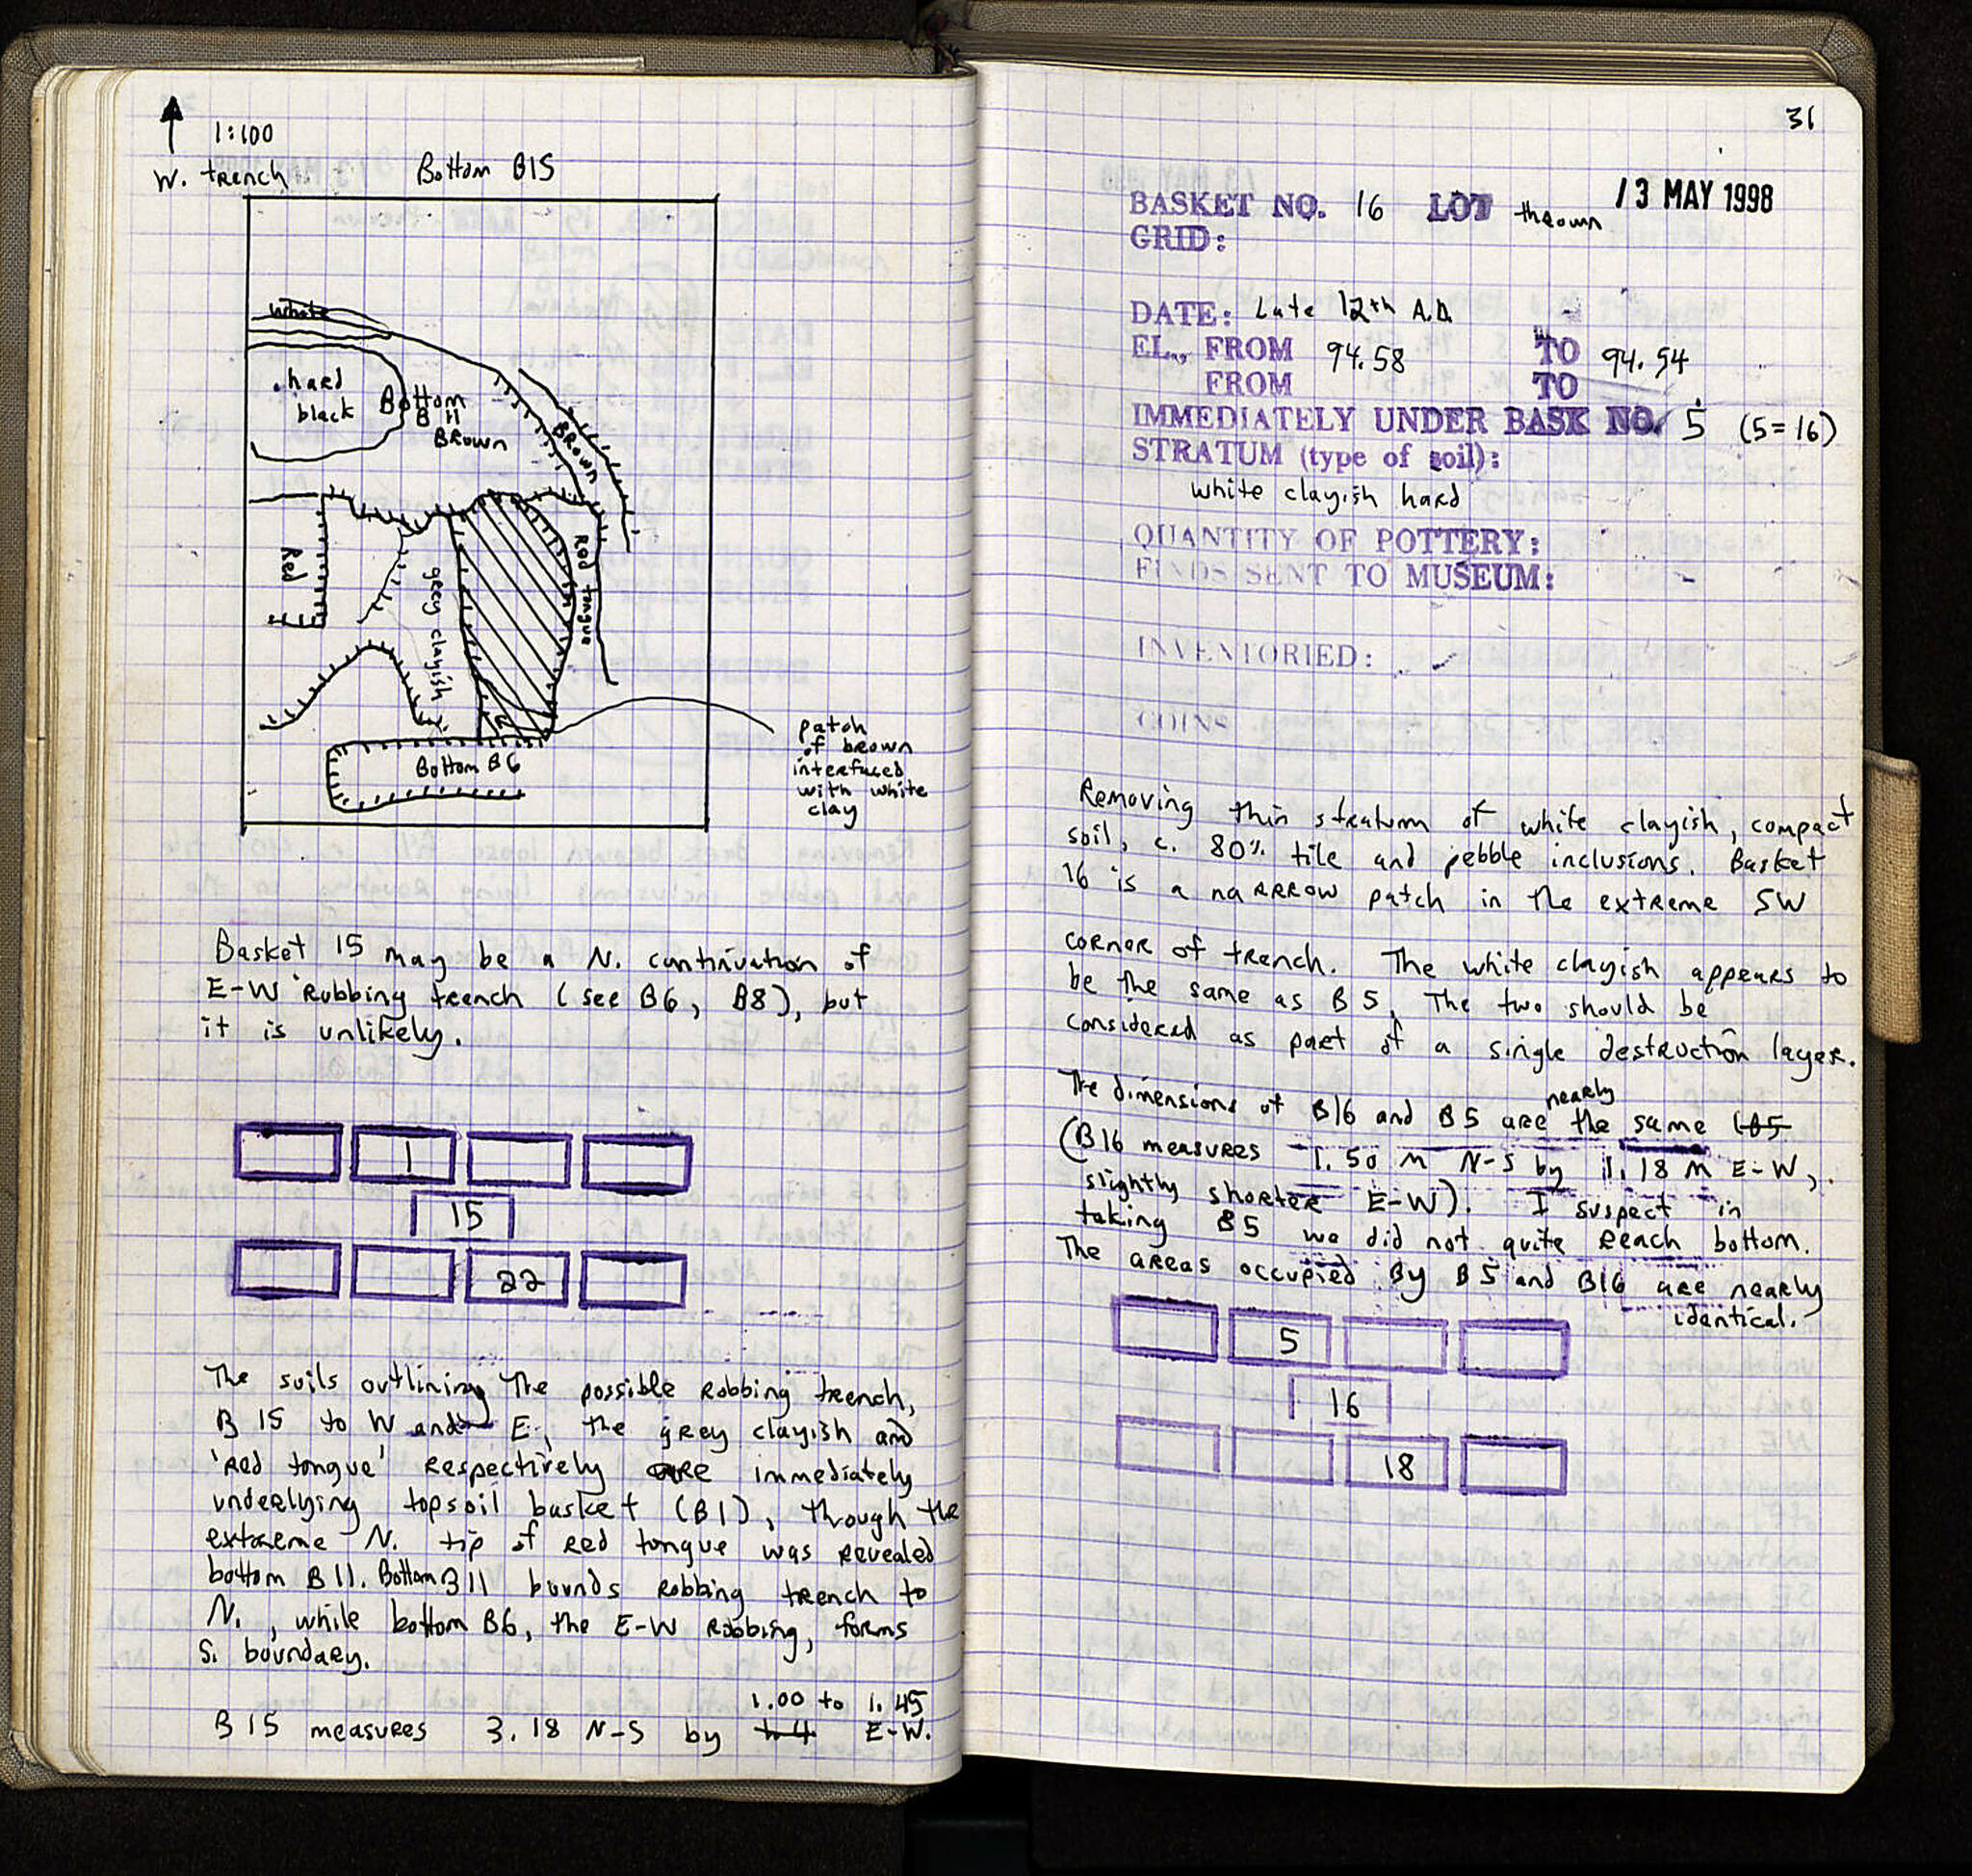 1:100
W. trench
Bottom B15
white
hard
black
Bottom
B 11
BROWN
BROWN
Red
grey clayish
Red tongue
Bottom B6
patch
of brown
interfaced
with white
clay
Basket 15 may be a N. continuation of
E-W Robbing trench (see B6, B8), but
it is unlikely.
1
15
22
The soils outlining The possible Robbing trench,
B 15 to W and E, the grey clayish and
'Red tongue' Respectively are immediately
underlying topsoil basket (B1), through the
extreme N. tip of Red tongue was revealed
bottom B11. Bottom B11 bounds Robbing trench to
N., while bottom B6, the E-W Robbing, forms
S. boundary.
1.00 to 1.45
B 15 measures 3.18 N-S by E-W.
31
13 MAY 1998
BASKET NO. 16 LOT thrown
GRID:
DATE: Late 12th A.D.
EL., FROM 94.58 TO 94.54
FROM TO
IMMEDIATELY UNDER BASK NO. 5 (5=16)
STRATUM (type of soil):
white clayish hard
QUANTITY OF POTTERY:
FINDS SENT TO MUSEUM: -
INVENTORIED:
COINS
Removing thin stratum of white clayish, compact
soil, c. 80% tile and pebble inclusions. Basket
16 is a naRROW patch in the extreme SW
corner of trench. The white clayish appears to
be the same as B 5. The two should be
considered as part of a single destruction layer.
nearly
The dimensions of B16 and B5 are the same (B5
(B16 measures 1.50 m N-S by 1.18 m E-W,
slightly shorter E-W). I suspect in
taking B5 we did not quite Reach bottom.
The areas occupied By B5 and B16 are nearly
identical.
5
16
18